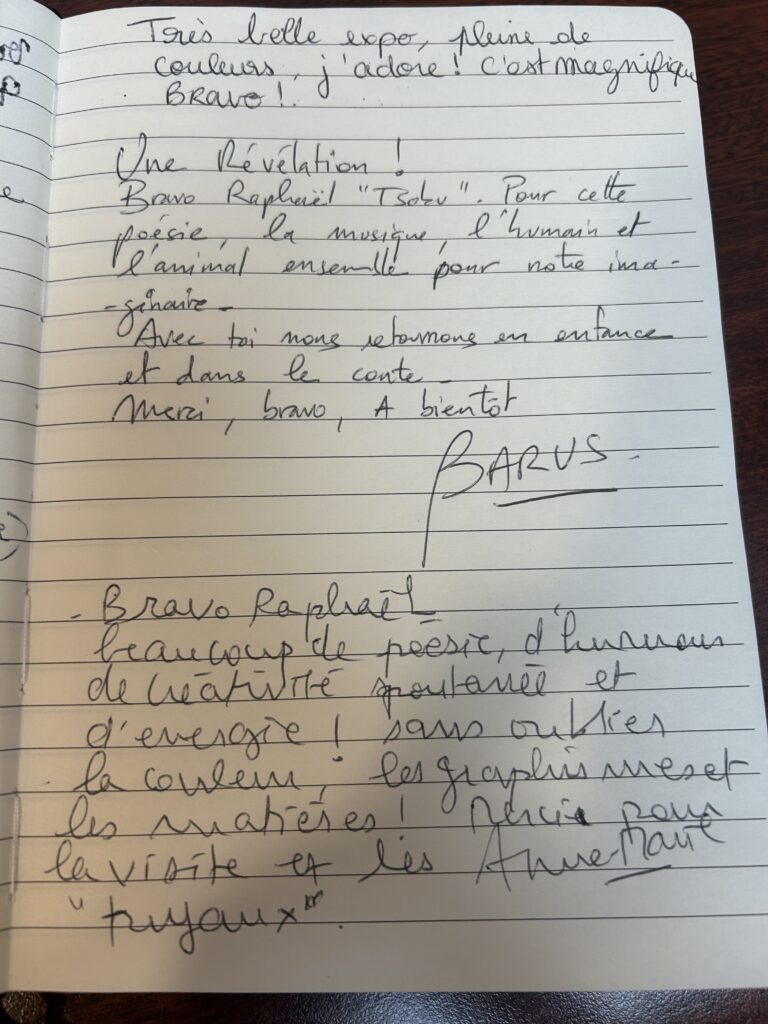 Très belle expo, pleine de
couleurs, j'adore! C'est magnifique
BRAVO!.
Une Révélation!
Bravo Raphaël "Tsobu". Pour cette
poésie, la musique, l'humain et
l'animal ensemble pour notre ima-
-ginaire-
Avec toi nous retournons en enfance
et dans le conte-
Merci, bravo, A bientôt
BARUS-
- Bravo Raphaël
beaucoup de poésie, d'humour
de créativité spontanée et
d'energie! sans oublier
la couleur, les graphismes et
les matières! Merci pour
la visite et les Anne-Marie
"tuyaux".